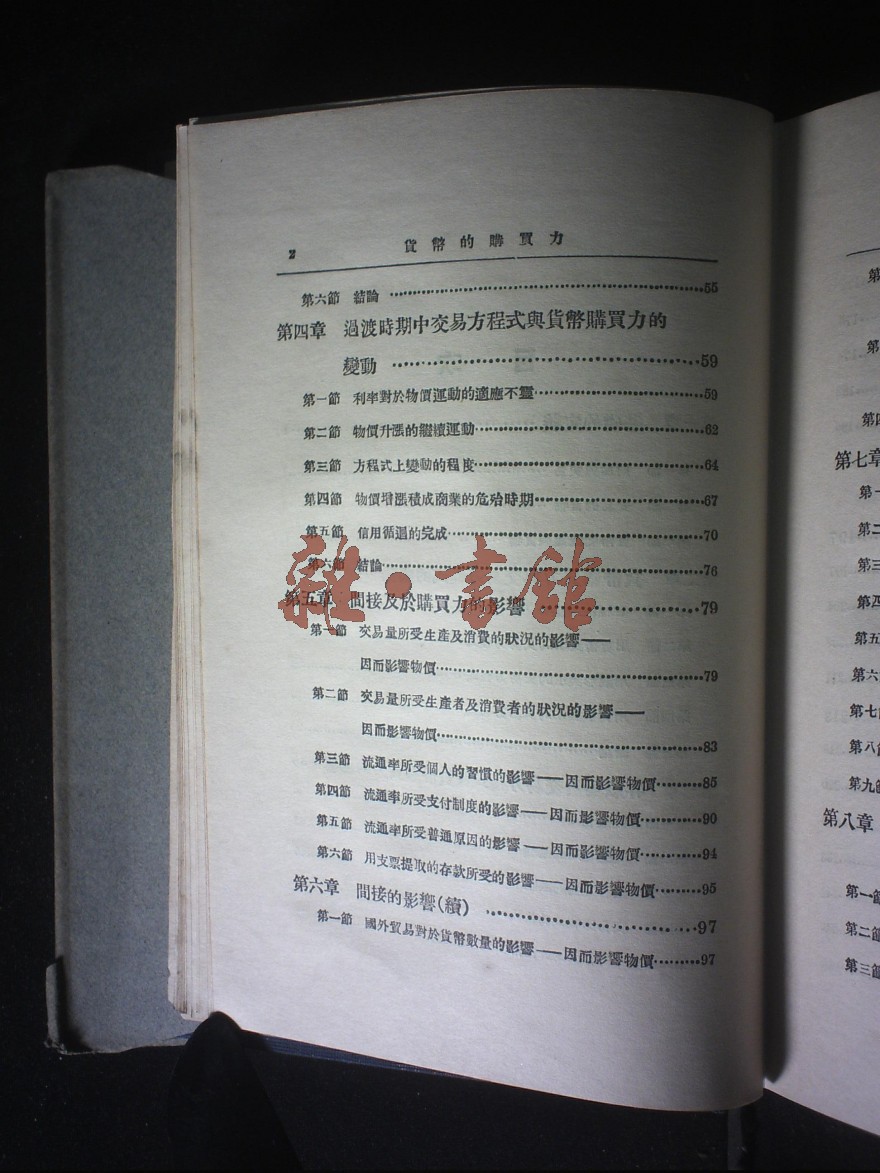 2 貨幣的購買力
第六節 結論 55
第四章 過渡時期中交易方程式與貨幣購買力的
變動 59
第一節 利率對於物價運動的適應不靈 59
第二節 物價升漲的繼續運動 62
第三節 方程式上變動的程度 64
第四節 物價增漲積成商業的危殆時期 67
第五節 信用循迴的完成 70
第六節 結論 76
第五章 間接及於購買力的影響 79
第一節 交易量所受生產及消費的狀況的影響——
因而影響物價 79
第二節 交易量所受生產者及消費者的狀況的影響——
因而影響物價 83
第三節 流通率所受個人的習慣的影響——因而影響物價 85
第四節 流通率所受支付制度的影響——因而影響物價 90
第五節 流通率所受普通原因的影響——因而影響物價 94
第六節 用支票提取的存款所受的影響——因而影響物價 95
第六章 間接的影響(續) 97
第一節 國外貿易對於貨幣數量的影響——因而影響物價 97
雜·書館
第
第
第四
第七章
第一
第二
第三
第四
第五
第六
第七
第八節
第九節
第八章
第一節
第二節
第三節